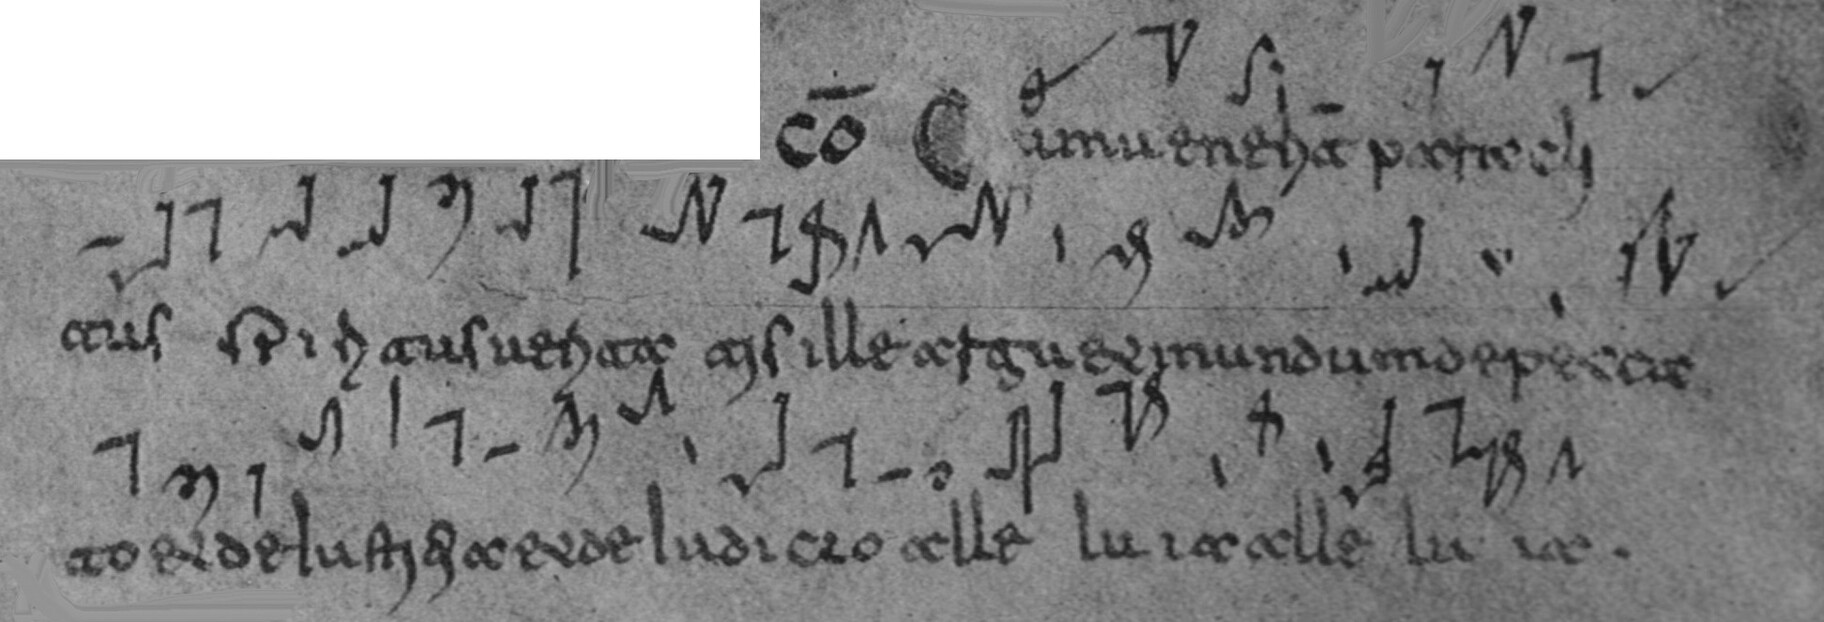 C̄O Cum uenerit paracli
tus spiritus ueritatis ille arguet mundum de pecca
to et de iustitia et de iudicio alle lu ia alle lu ia.